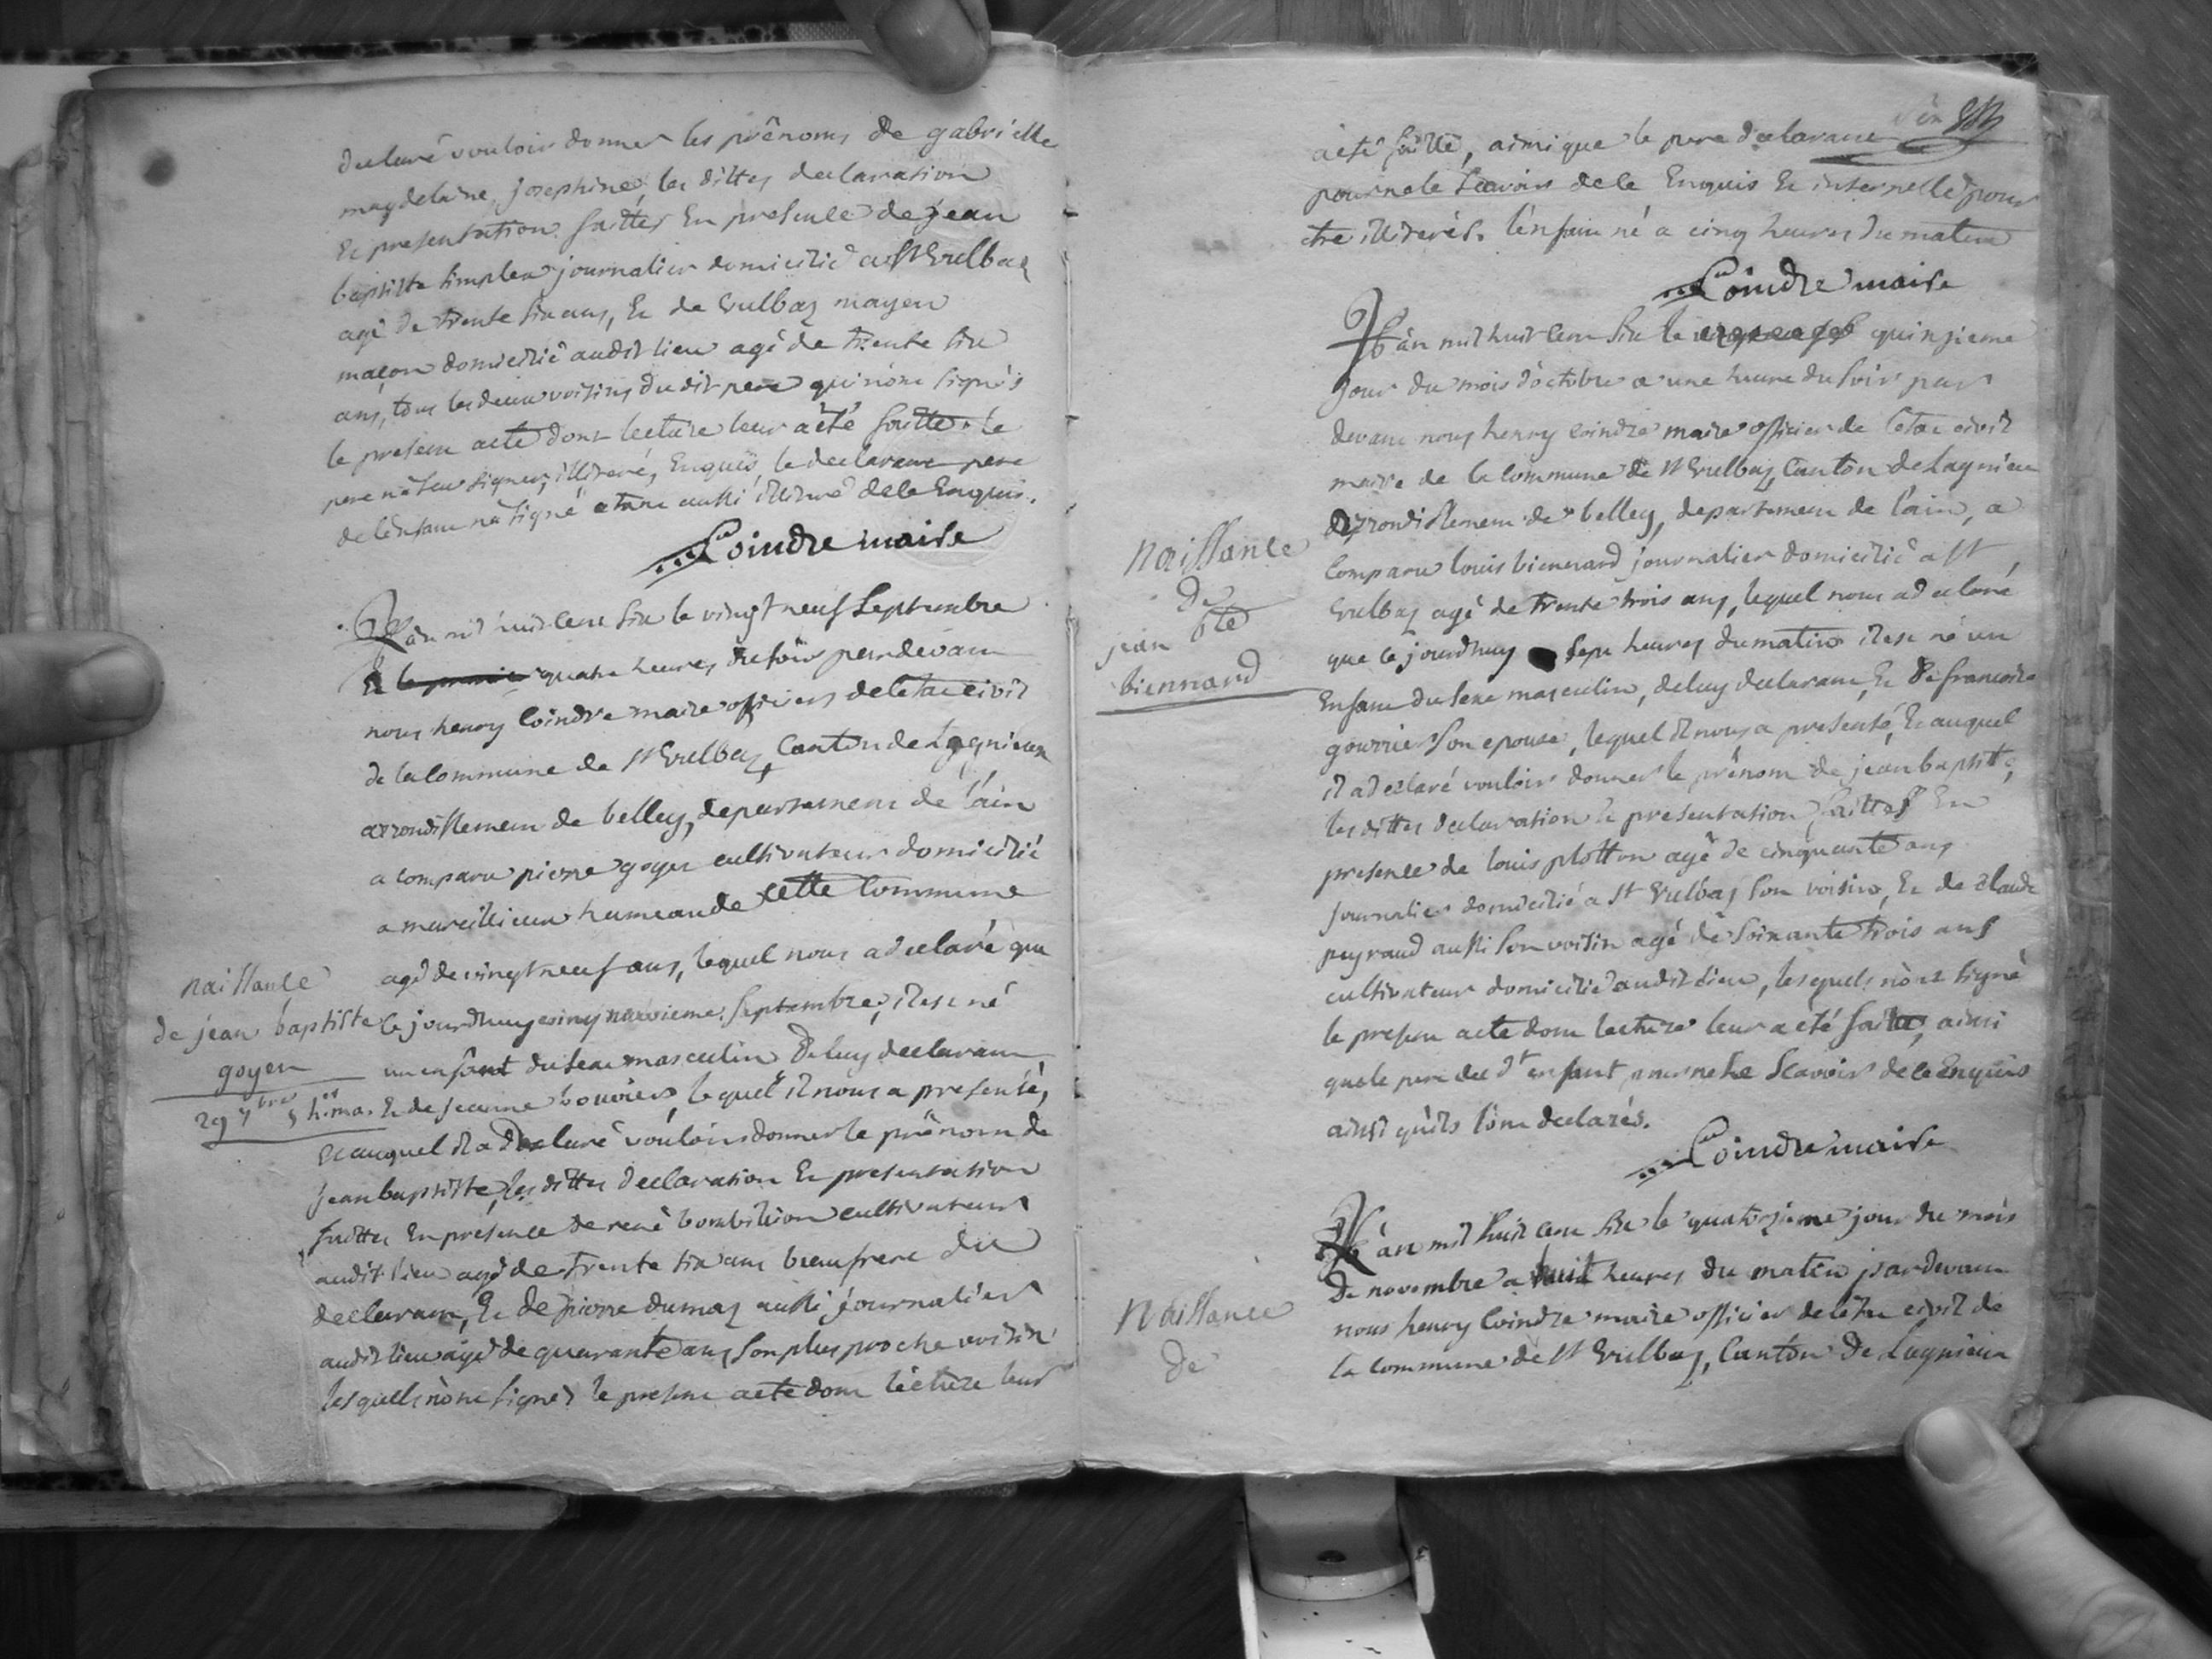 declaré vouloir donner les prênoms de gabrielle
magdelaine, josephine, les dittes declaration
Et presentation faittes En presence de jean
baptiste simplex journalier domicilié a St Vulbaz
agé de trente six ans, Et de Vulbaz mayen
maçon domicilié audit lieu agé de trente six
ans, tous les deux voisins du dit pere qui n'ont signés
le present acte dont lecture leur a êté faitte. le
pere n'a sçu signer, illiteré, Enquis, le declarant pere
de l'enfant n'a signé etant aussi illiteré de le Enquis.
Coindre maire
L'an mil huit cent six le vingt neuf septembre
Et quatre heures du soir pardevant
nous henry Coindre maire officiers de l'etat civil
de la Commune de St Vulbaz, Canton de Lagnieux
arrondissement de belley, departement de l'ain
a comparu pierre goyen cultivateur domicilié
a marcillieux hameau de cette Commune
agé de vingt neuf ans, lequel nous a declaré que
naissance
de jean baptiste
goyen
29 7bre 5 h. ma.
ce jourdhuy vingt neuvieme septembre, il est né
un enfant du sexe masculin de luy declarant
Et de jeanne bouvier, lequel il nous a presenté,
Et auquel il a declaré vouloir donner le prênom de
jean baptiste, les dittes declaration Et presentation
faittes En presence de renê bombilion cultivateur
audit lieu agé de trente six ans beaufrere du
declarant, Et de pierre dumas aussi journalier
audit lieu agé de quarante ans son plus proche voisin
lesquells n'ont signés le present acte dont lecture leur
a eté faitte, ainsi que le pere declarant
pour ne le sçavoir de le Enquis Et interpellé pour
etre illiterés. l'enfant né a cinq heures du matin
Coindre maire
L'an mil huit cent six le quinzieme
jour du mois d'octobre a une heure du soir par
devant nous henry coindre maire officier de l'etat civil
maire de la commune de St Vulbaz, Canton de Lagnieu
arrondissement de belley, departement de l'ain, a
Naissance
de
jean bte
biennard
Comparu louis biennard journalier domicilié a St
Vulbaz agé de trente trois ans, lequel nous a declaré
que ce jourdhuy sept heures du matin il est né un
Enfant du sexe masculin, de luy declarant, Et de francoise
gourrier son epouse, lequel il nous a presenté, Et auquel
il a declaré vouloir donner le prénom de jean baptiste,
les dittes declaration Et presentation faittes En
presence de louis plotton agé de cinquante ans
journalier domicilié a St Vulbaz son voisin, Et de claude
peyraud aussi son voisin agé de soixante trois ans
cultivateur domicilié audit lieu, lesquels n'ont signé
le present acte dont lecture leur a eté faite, ainsi
que le pere du dt enfant pour ne le sçavoir de le Enquis
ainsi qu'ils l'ont declarés.
Coindre maire
L'an mil huit cent six le quatorzieme jour du mois
de novembre a huit heures du matin pardevant
Naissance
de
nous henry Coindre maire officier de l'etat civil de
la commune de St Vulbaz, Canton de Lagnieux